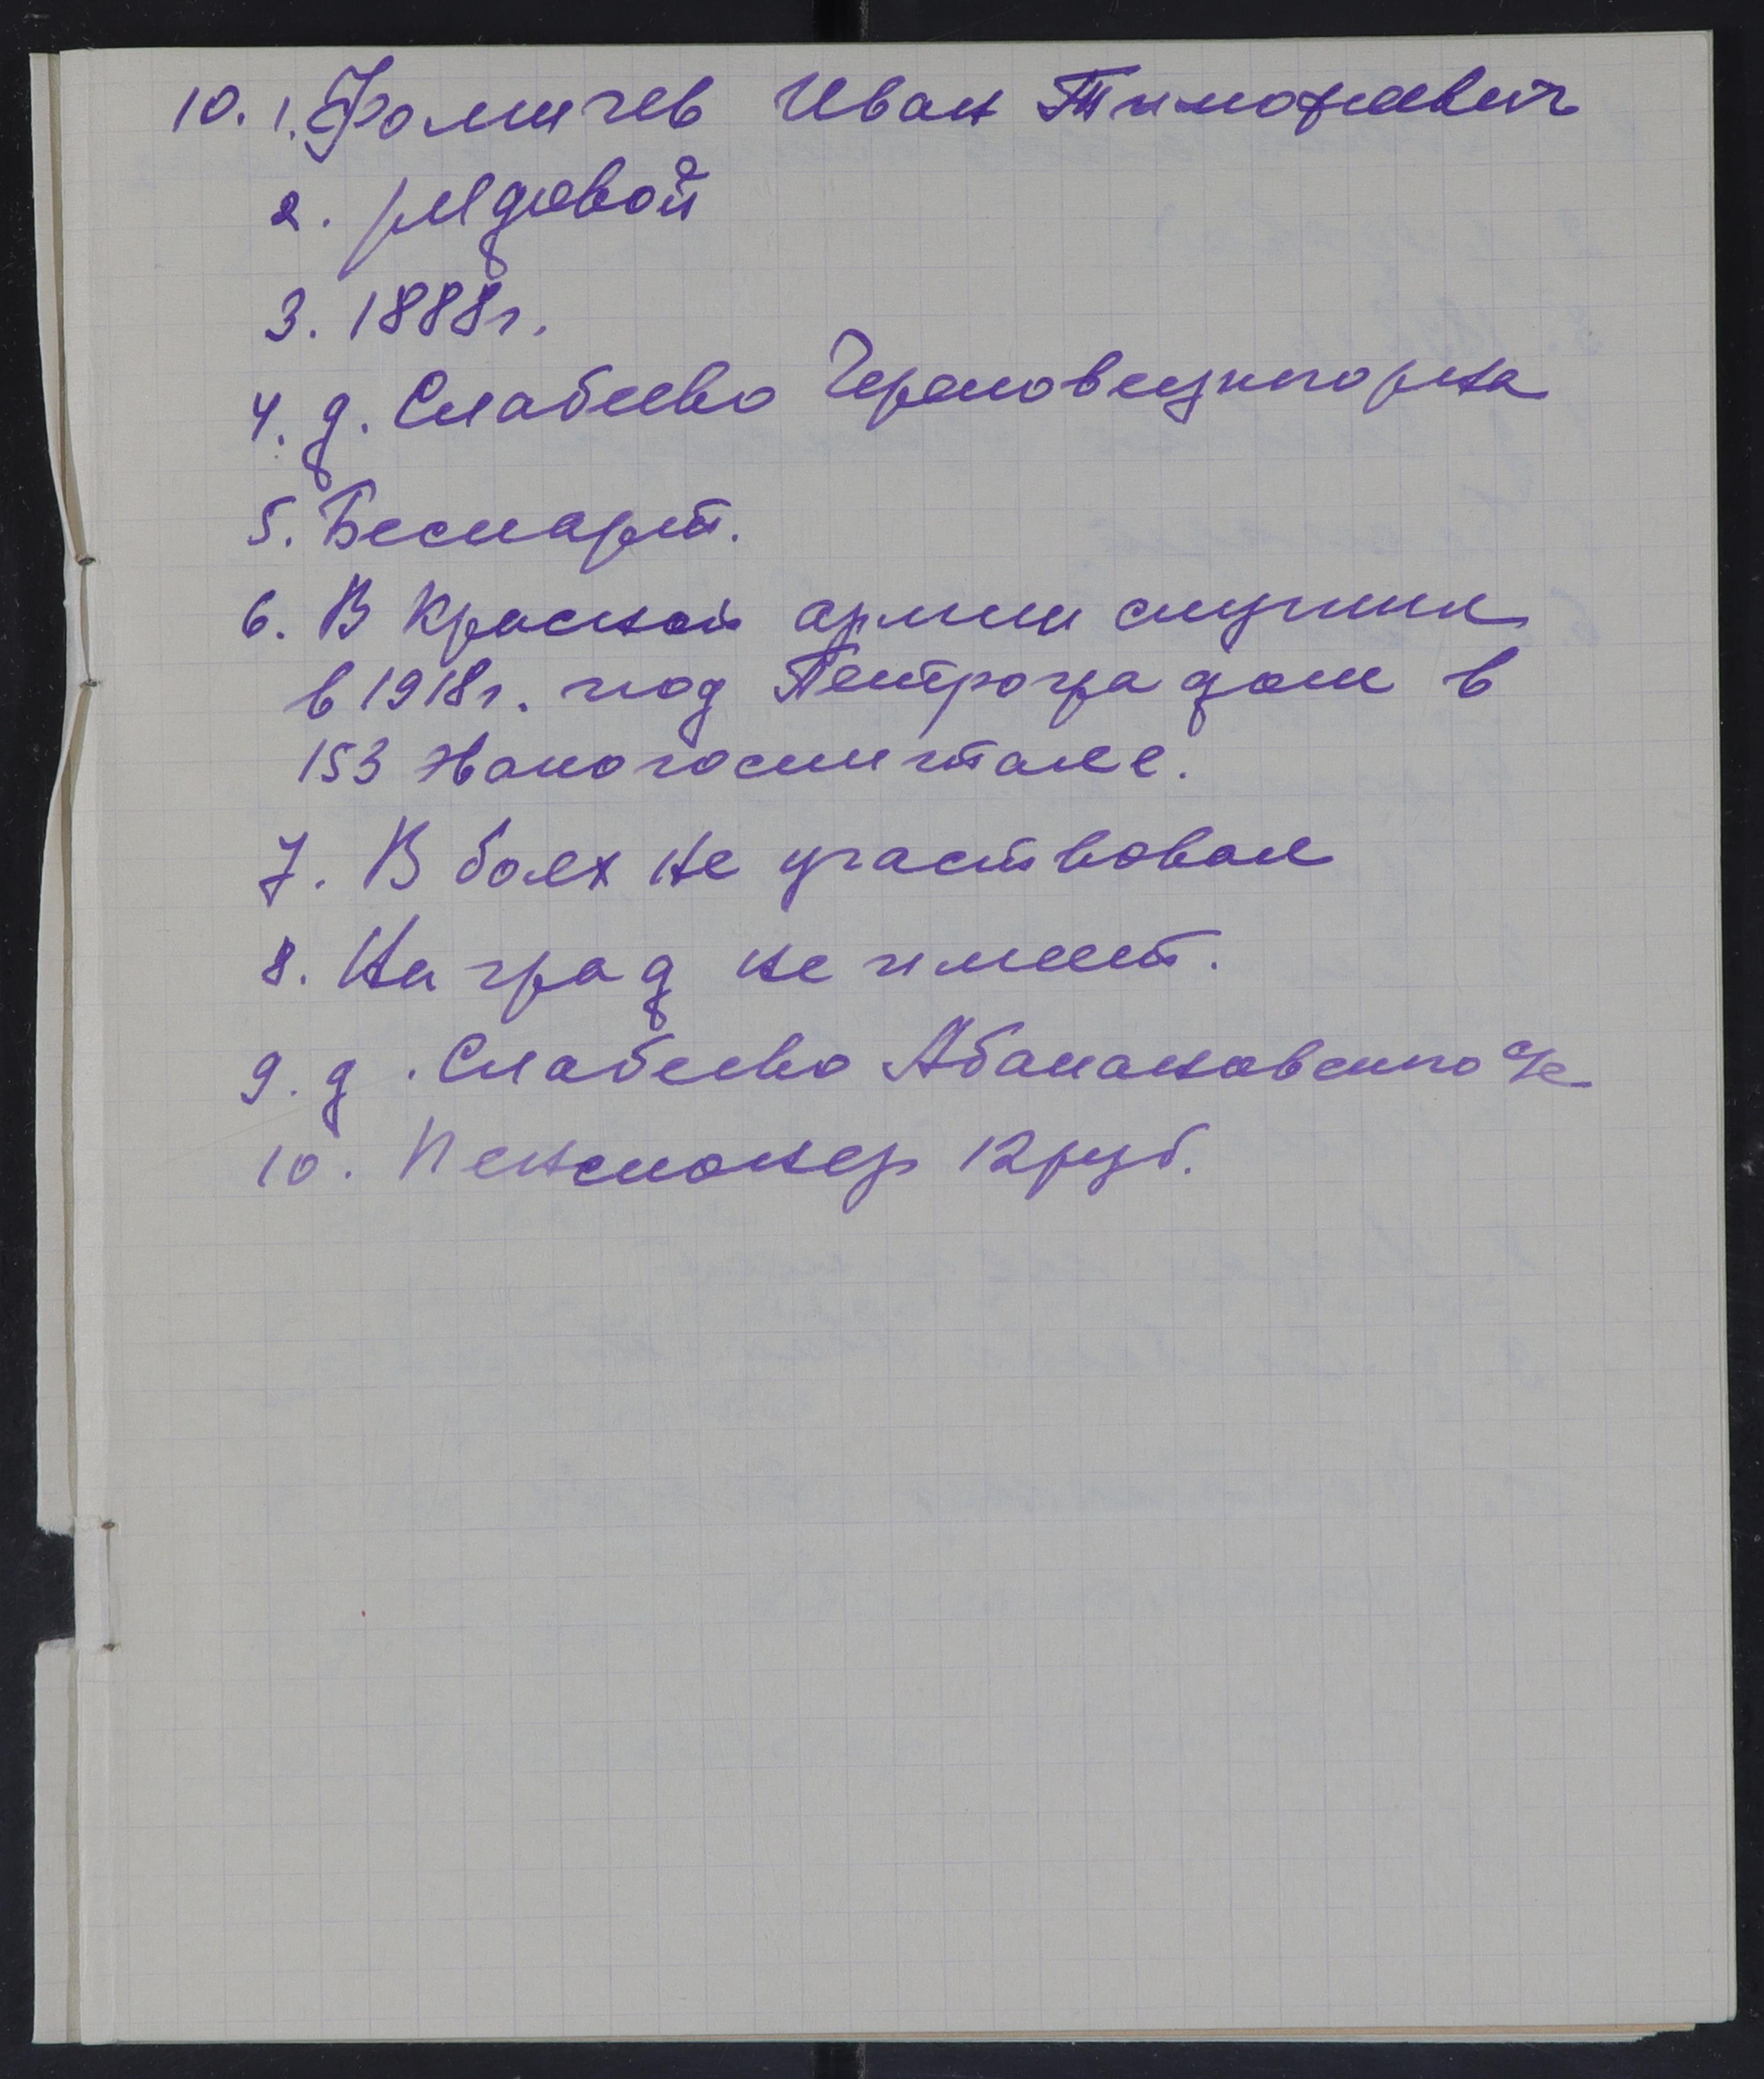 10. 1. Фомичев Иван Тимофеевич
2. рядовой
3. 1888г.
4. д. Слабеево Череповецкого р-на
5. Беспарт.
6. В Красной армии служил
в 1918г. под Петроградом в
153 эвакогоспитале.
7. В боях не участвовал
8. Наград не имеет.
9. д. Слабеево Абакановского с/с
10. Пенсионер 12 руб.